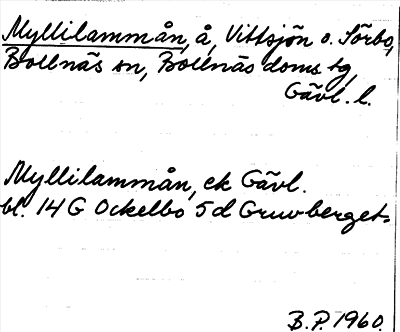 Myllilammån, å, Vittsjön o. Sörbo,
Bollnäs sn, Bollnäs doms tg,
Gävl. l.
Myllilammån, ek Gävl.
bl. 14 G Ockelbo 5 d Gruvberget.
B.P. 1960.